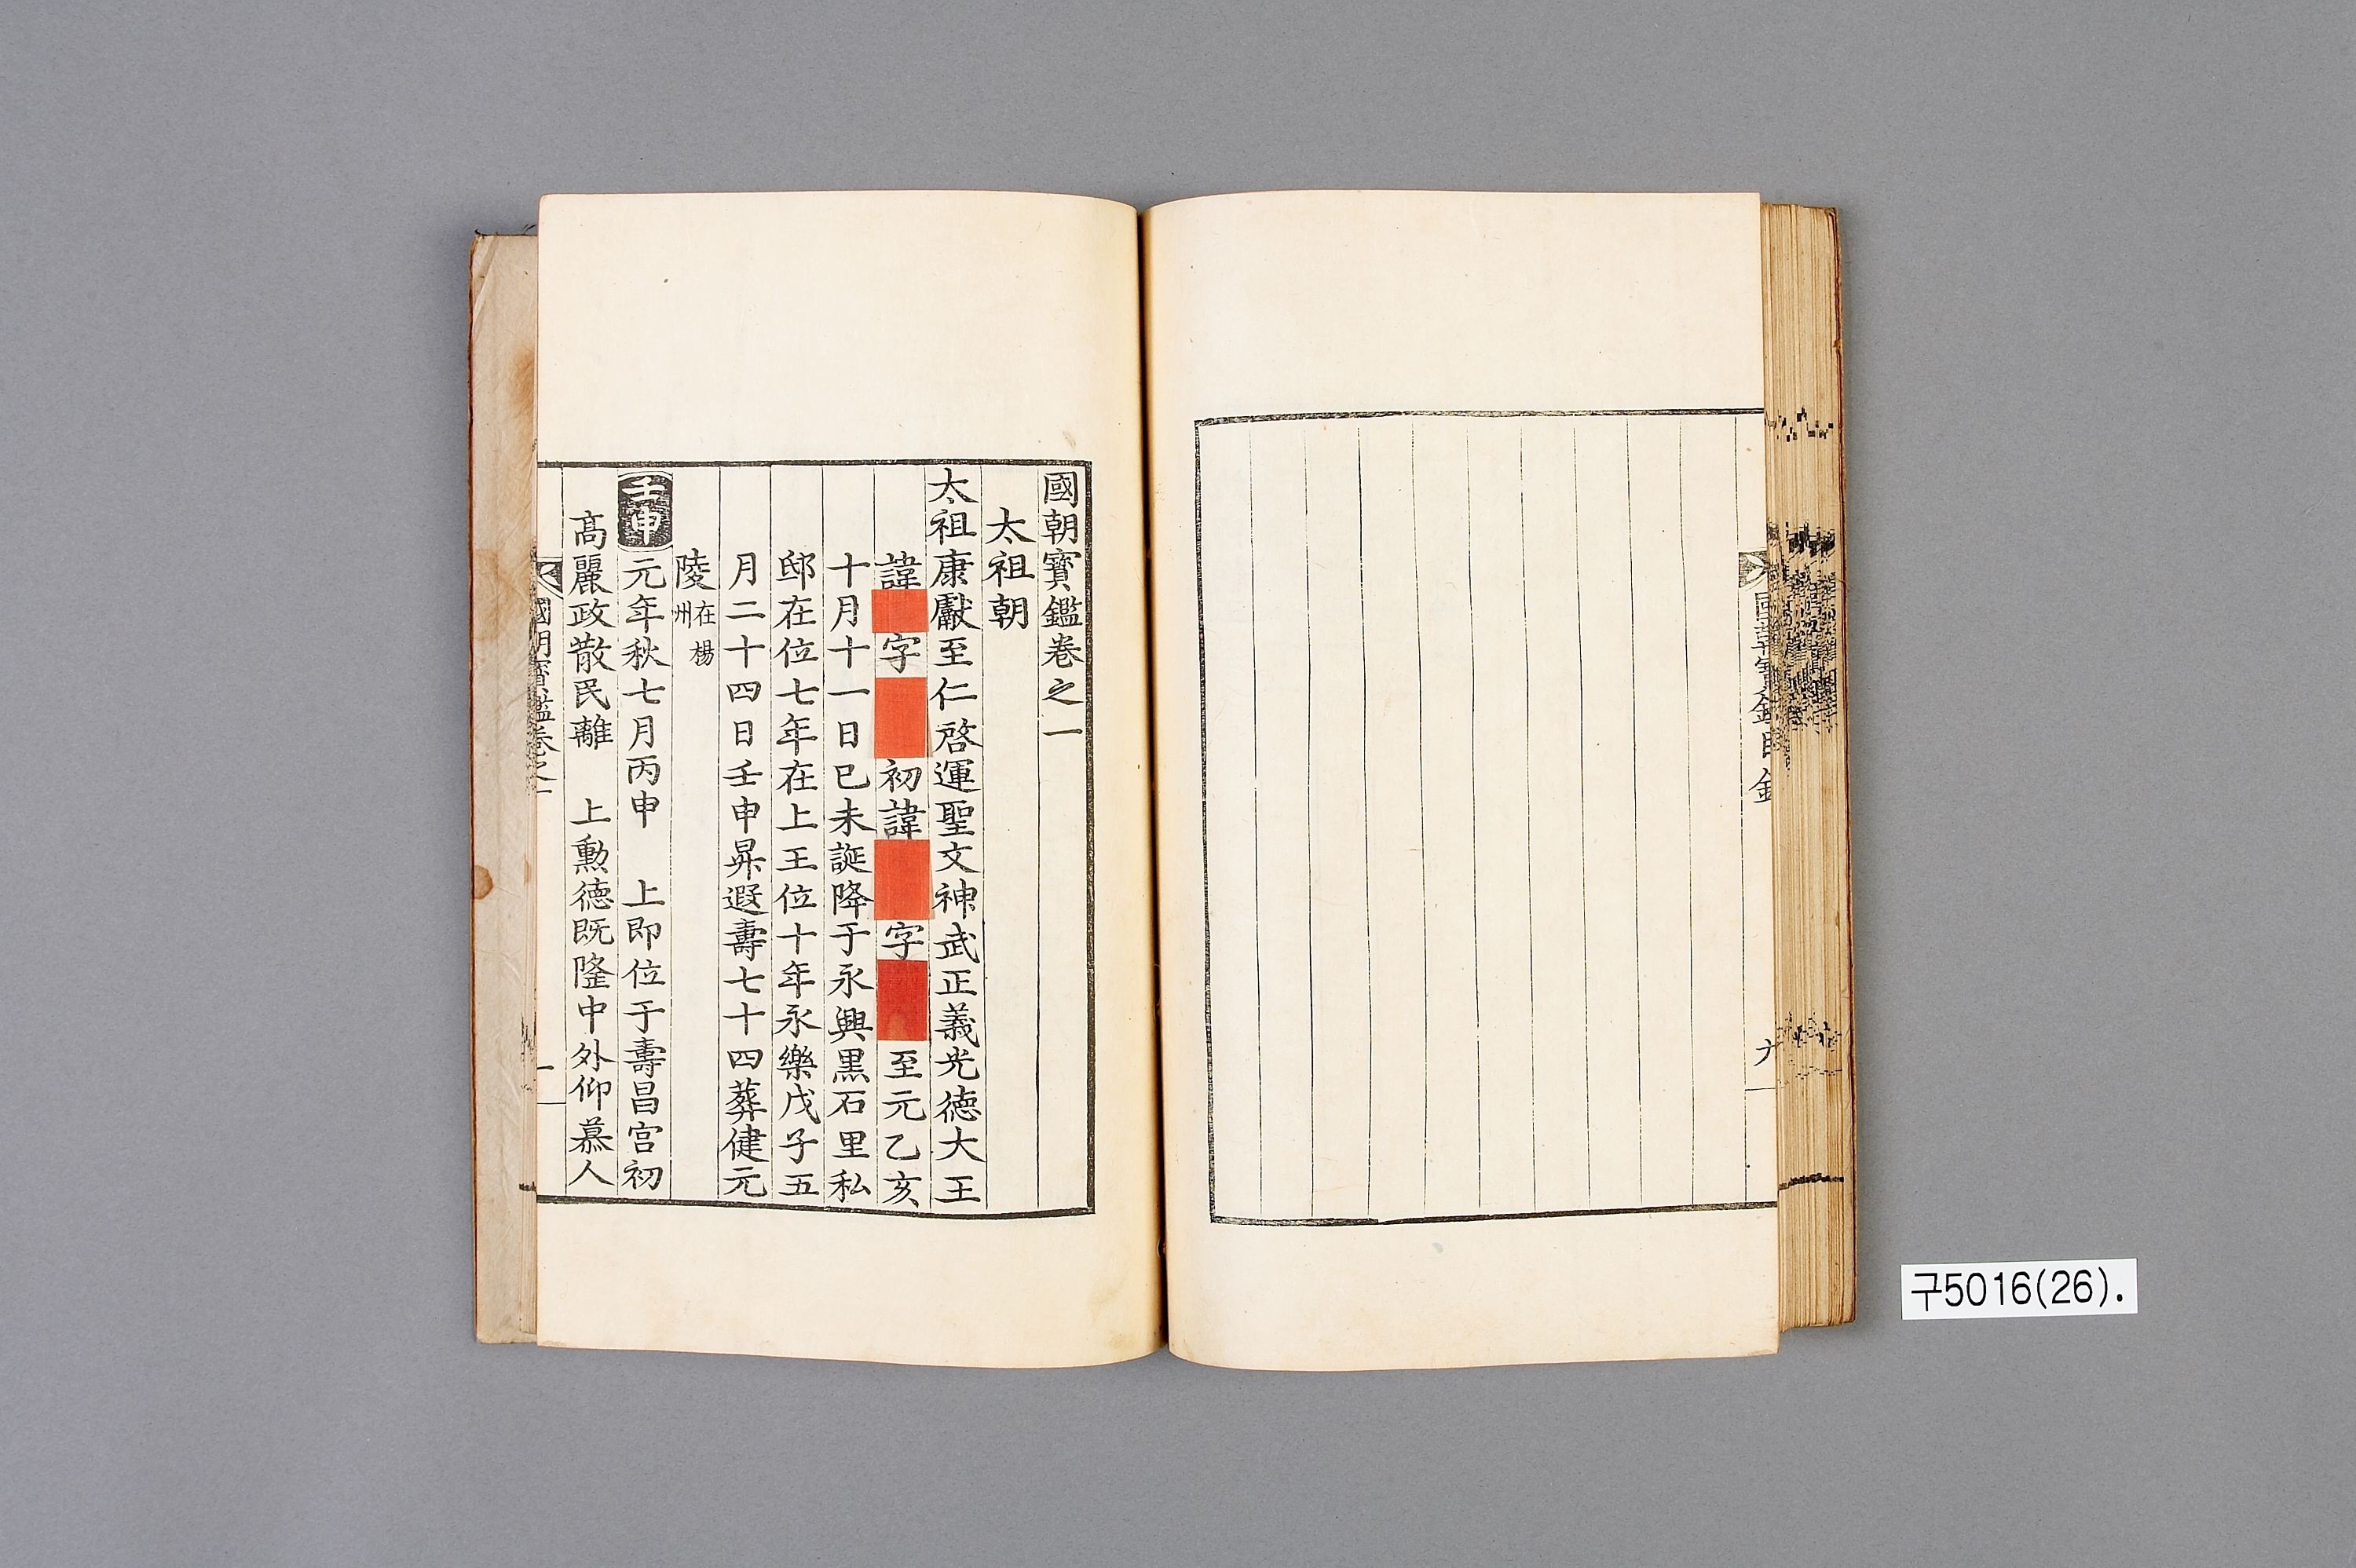 國朝寶鑑卷之一
太祖朝
太祖康獻至仁啓運聖文神武正義光德大王
諱 字 初諱 字 至元乙亥
十月十一日已未誕降于永興黑石里私
邸在位七年在上王位十年永樂戊子五
月二十四日壬申昇遐壽七十四葬健元
陵在楊州
壬申元年秋七月丙申 上即位于壽昌宮初
高麗政散民離 上勳德旣隆中外仰慕人
國朝寶鑑卷之一
一
國朝寶鑑目錄
六
구5016(26).